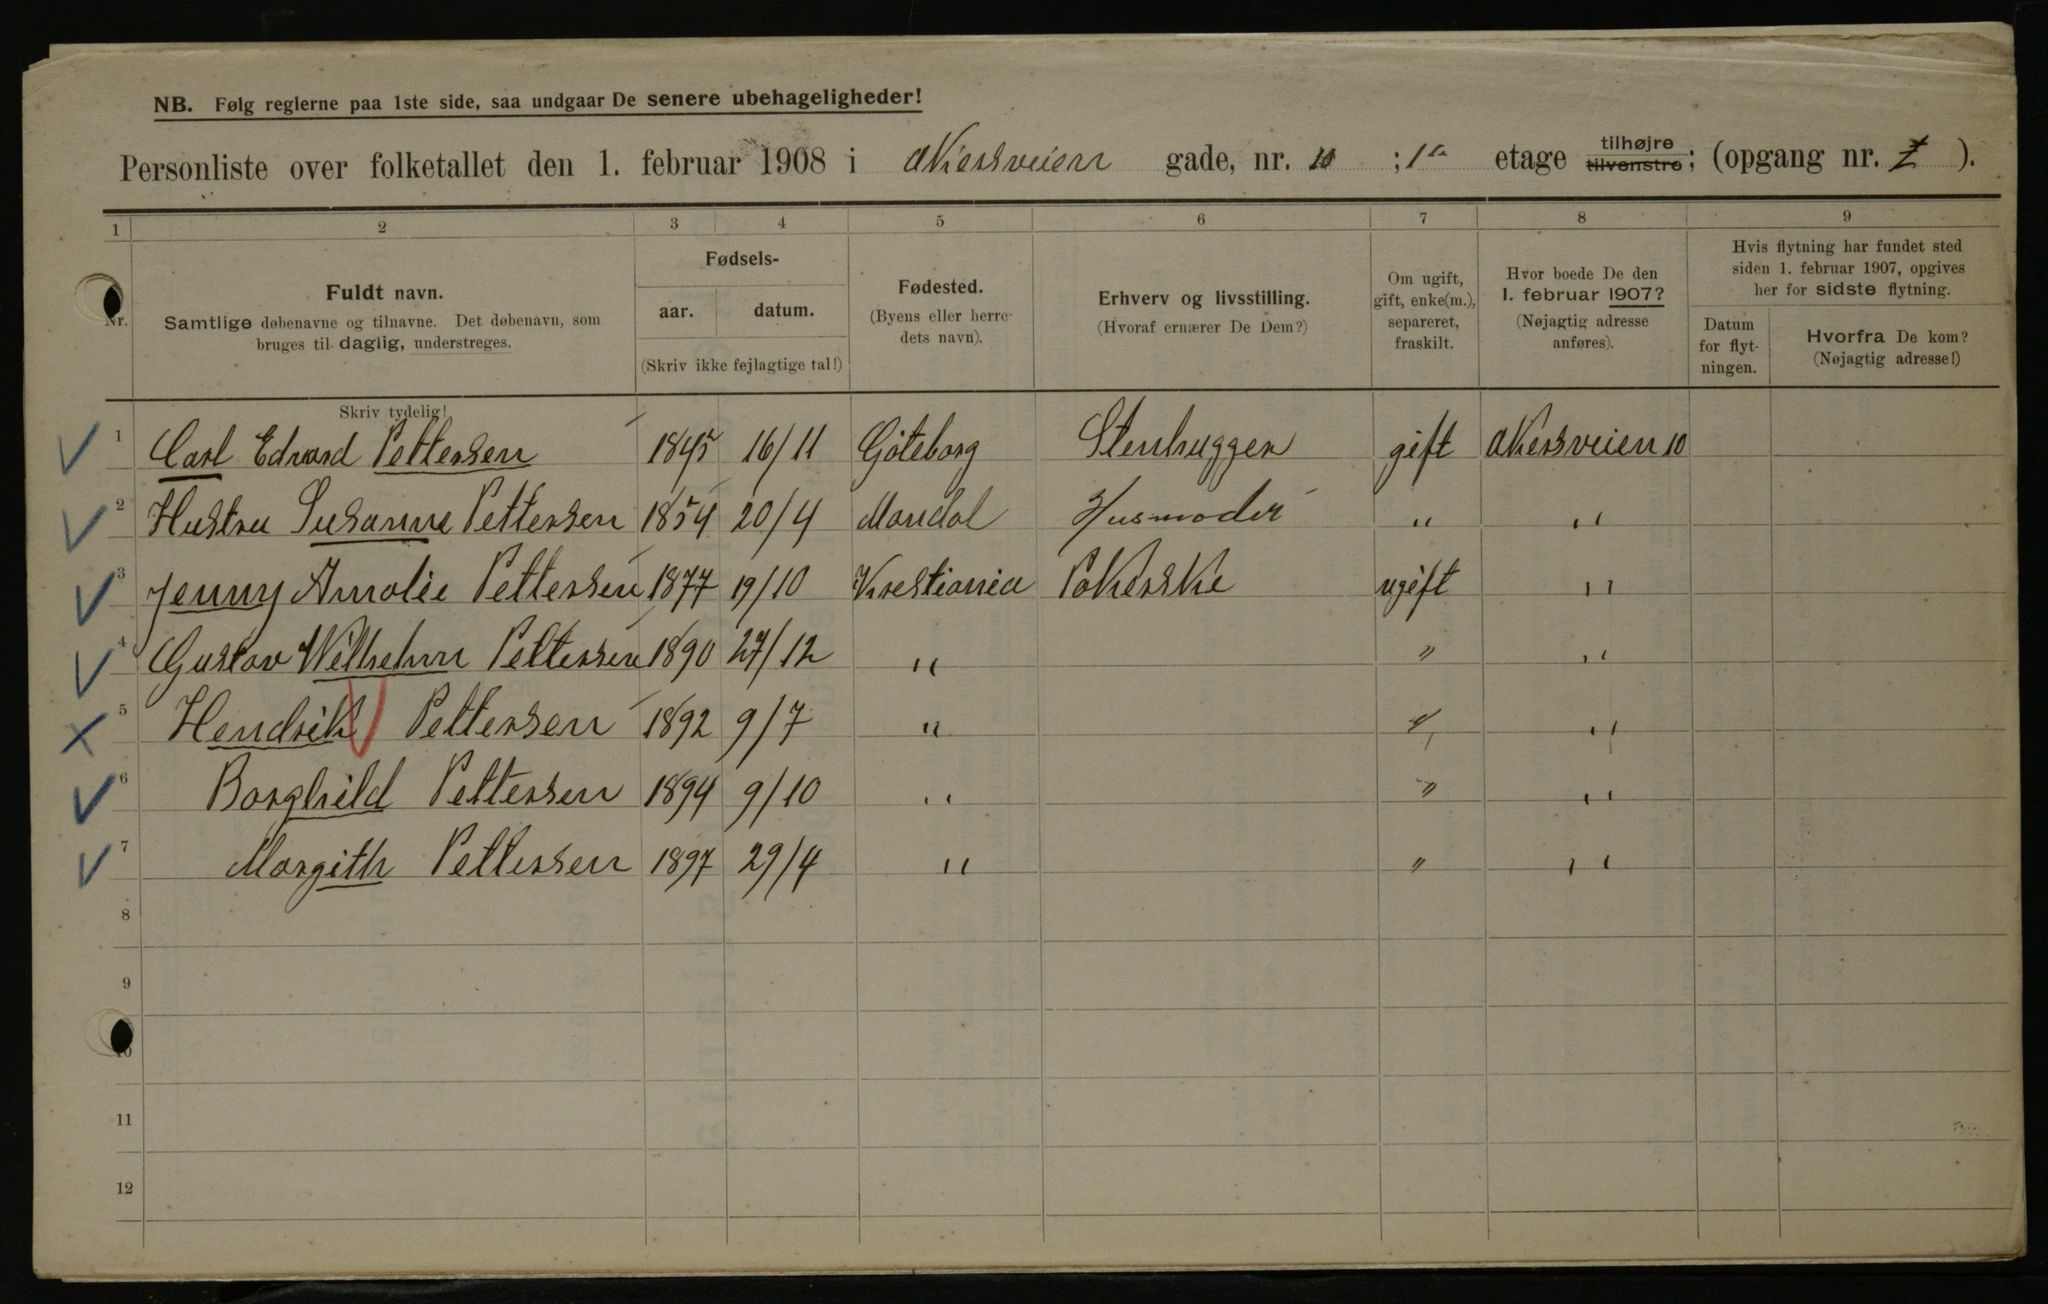 NB. Følg reglerne paa 1ste side, saa undgaar De senere ubehageligheder!
Personliste over folketallet den 1. februar 1908 i Akersveien gade, nr. 10 ; 1ste etage tilhøjre tilvenstre; (opgang nr. ).
1 2 3 4 5 6 7 8 9
Nr. Fuldt navn. Samtlige døbenavne og tilnavne. Det døbenavn, som bruges til daglig, understreges.
Fødsels- aar. datum. (Skriv ikke fejlagtige tal!)
Fødested. (Byens eller herredets navn).
Erhverv og livsstilling. (Hvoraf ernærer De Dem?)
Om ugift, gift, enke(m.), separeret, fraskilt.
Hvor boede De den 1. februar 1907? (Nøjagtig adresse anføres).
Hvis flytning har fundet sted siden 1. februar 1907, opgives her for sidste flytning.
Datum for flytningen. Hvorfra De kom? (Nøjagtig adresse!)
Skriv tydelig!
1 Carl Edvard Pettersen 1845 16/11 Göteborg Stenhugger gift Akersveien 10
2 Hustru Susanne Pettersen 1854 20/4 Mandal Husmoder " "
3 Jenny Amalie Pettersen 1877 19/10 Krestiania Pakerske ugift "
4 Gustav Wilhelm Pettersen 1890 27/12 " " "
5 Hendrik Pettersen 1892 9/7 " " "
6 Borghild Pettersen 1894 9/10 " " "
7 Margith Pettersen 1897 29/4 " " "
8
9
10
11
12